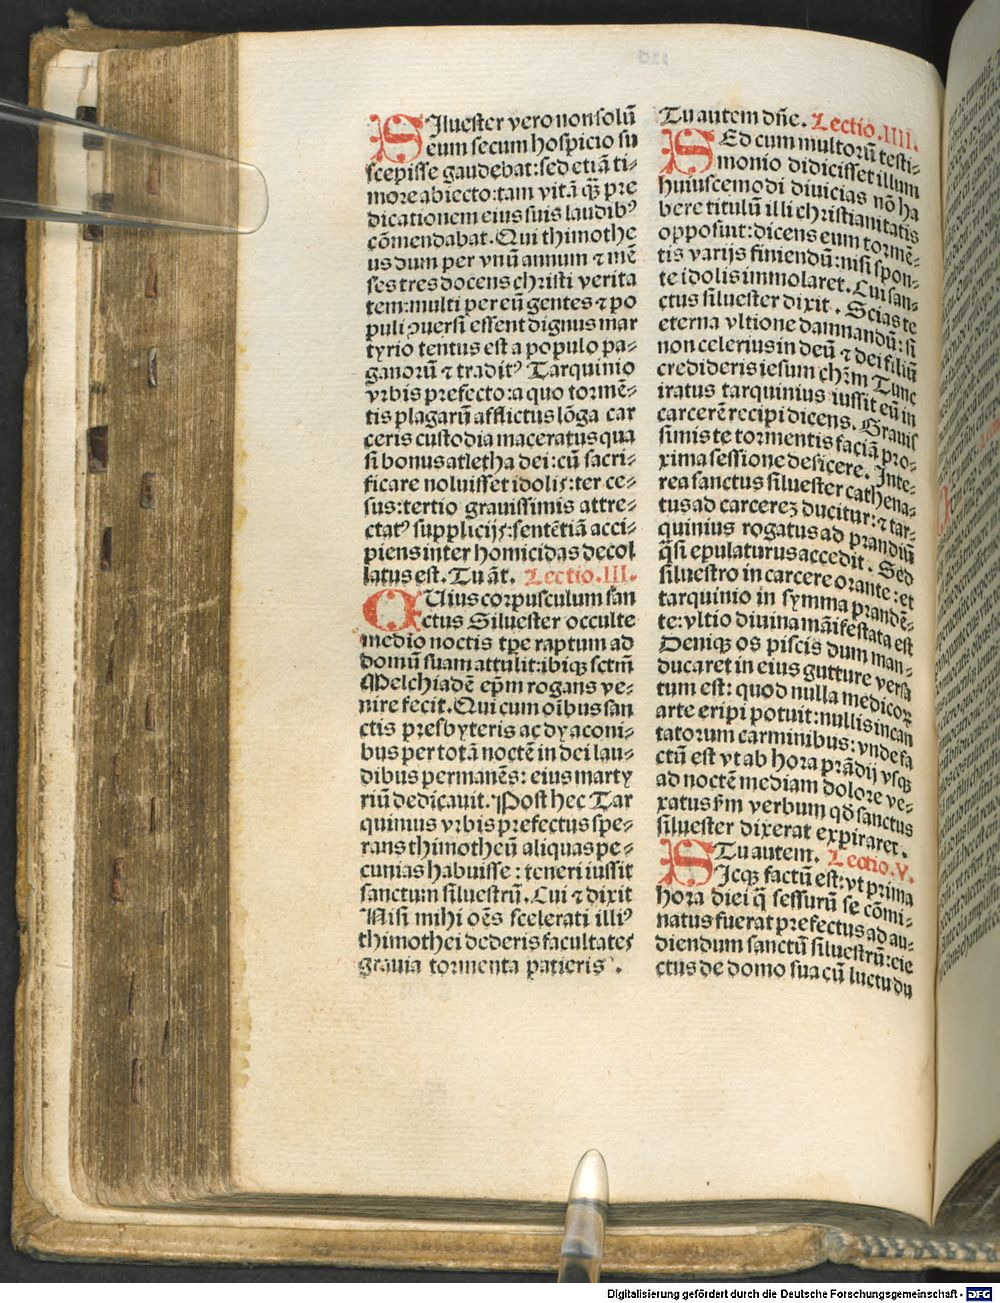 Siluester vero non solū
eum secum hospicio su
scepisse gaudebat: sed etiā ti⸗
more abiecto: tam vitā q̄ꝫ pre
dicationem eius suis laudibꝰ
cōmendabat. Qui thimothe
us dum per vnū annum ⁊ mē
ses tres docens christi verita
tem: multi per eū gentes ⁊ po
puli ꝯuersi essent dignus mar
tyrio tentus est a populo pa⸗
ganorū ⁊ traditꝰ Tarquinio
vrbis prefecto: a quo tormē⸗
tis plagarū afflictus lōga car
ceris custodia maceratus qua
si bonus atletha dei: cū sacri⸗
ficare noluisset idolis: ter ce⸗
sus: tertio grauissimis attre⸗
ctatꝰ supplicijs: sentētiā acci⸗
piens inter homicidas decol
latus est. Tu āt. Lectio. III.
CUius corpusculum san
ctus Siluester occulte
medio noctis tꝑe raptum ad
domū suam attulit: ibiqꝫ sctm̄
Melchiadē ep̄m rogans ve⸗
nire fecit. Qui cum oībus san
ctis presbyteris ac dyaconi⸗
bus per totā noctē in dei lau⸗
dibus permanēs: eius marty
riū dedicauit. Post hec Tar
quinius vrbis prefectus spe⸗
rans thimotheū aliquas pe⸗
cunias habuisse: teneri iussit
sanctum siluestrū. Cui ⁊ dixit
Nisi mihi oēs scelerati illiꝰ
thimothei dederis facultates
grauia tormenta patieris.
Tu autem dn̄e. Lectio. IIII.
SEd cum multorū testi⸗
monio didicisset illum
huiuscemodi diuicias nō ha
bere titulū illi christianitatis
opposuit: dicens eum tormē⸗
tis varijs finiendū: nisi spon⸗
te idolis immolaret. Cui san⸗
ctus siluester dixit. Scias te
eterna vltione damnandū: si
non celerius in deū ⁊ dei filiū
credideris iesum chr̄m Tunc
iratus tarquinius iussit eū in
carcerē recipi dicens. Grauis
simis te tormentis faciā pro⸗
xima sessione deficere. Inte⸗
rea sanctus siluester cathena⸗
tus ad carcereꝫ ducitur: ⁊ tar⸗
quinius rogatus ad prandiū
q̄si epulaturus accedit. Sed
siluestro in carcere orante: et
tarquinio in symma prandē⸗
te: vltio diuina māifestata est
Deniqꝫ os piscis dum man⸗
ducaret in eius gutture versa
tum est: quod nulla medicoꝝ
arte eripi potuit: nullis incan
tatorum carminibus: vnde fa
ctū est vt ab hora prādij vsqꝫ
ad noctē mediam dolore ve⸗
xatus ẜm verbum qd̄ sanctus
siluester dixerat expiraret.
Tu autem. Lectio. V.
SIcqꝫ factū est: vt prima
hora diei q̄ sessurū se cōmi⸗
natus fuerat prefectus ad au⸗
diendum sanctū siluestrū: eie
ctus de domo sua cū luctu du
Digitalisierung gefördert durch die Deutsche Forschungsgemeinschaft - DFG